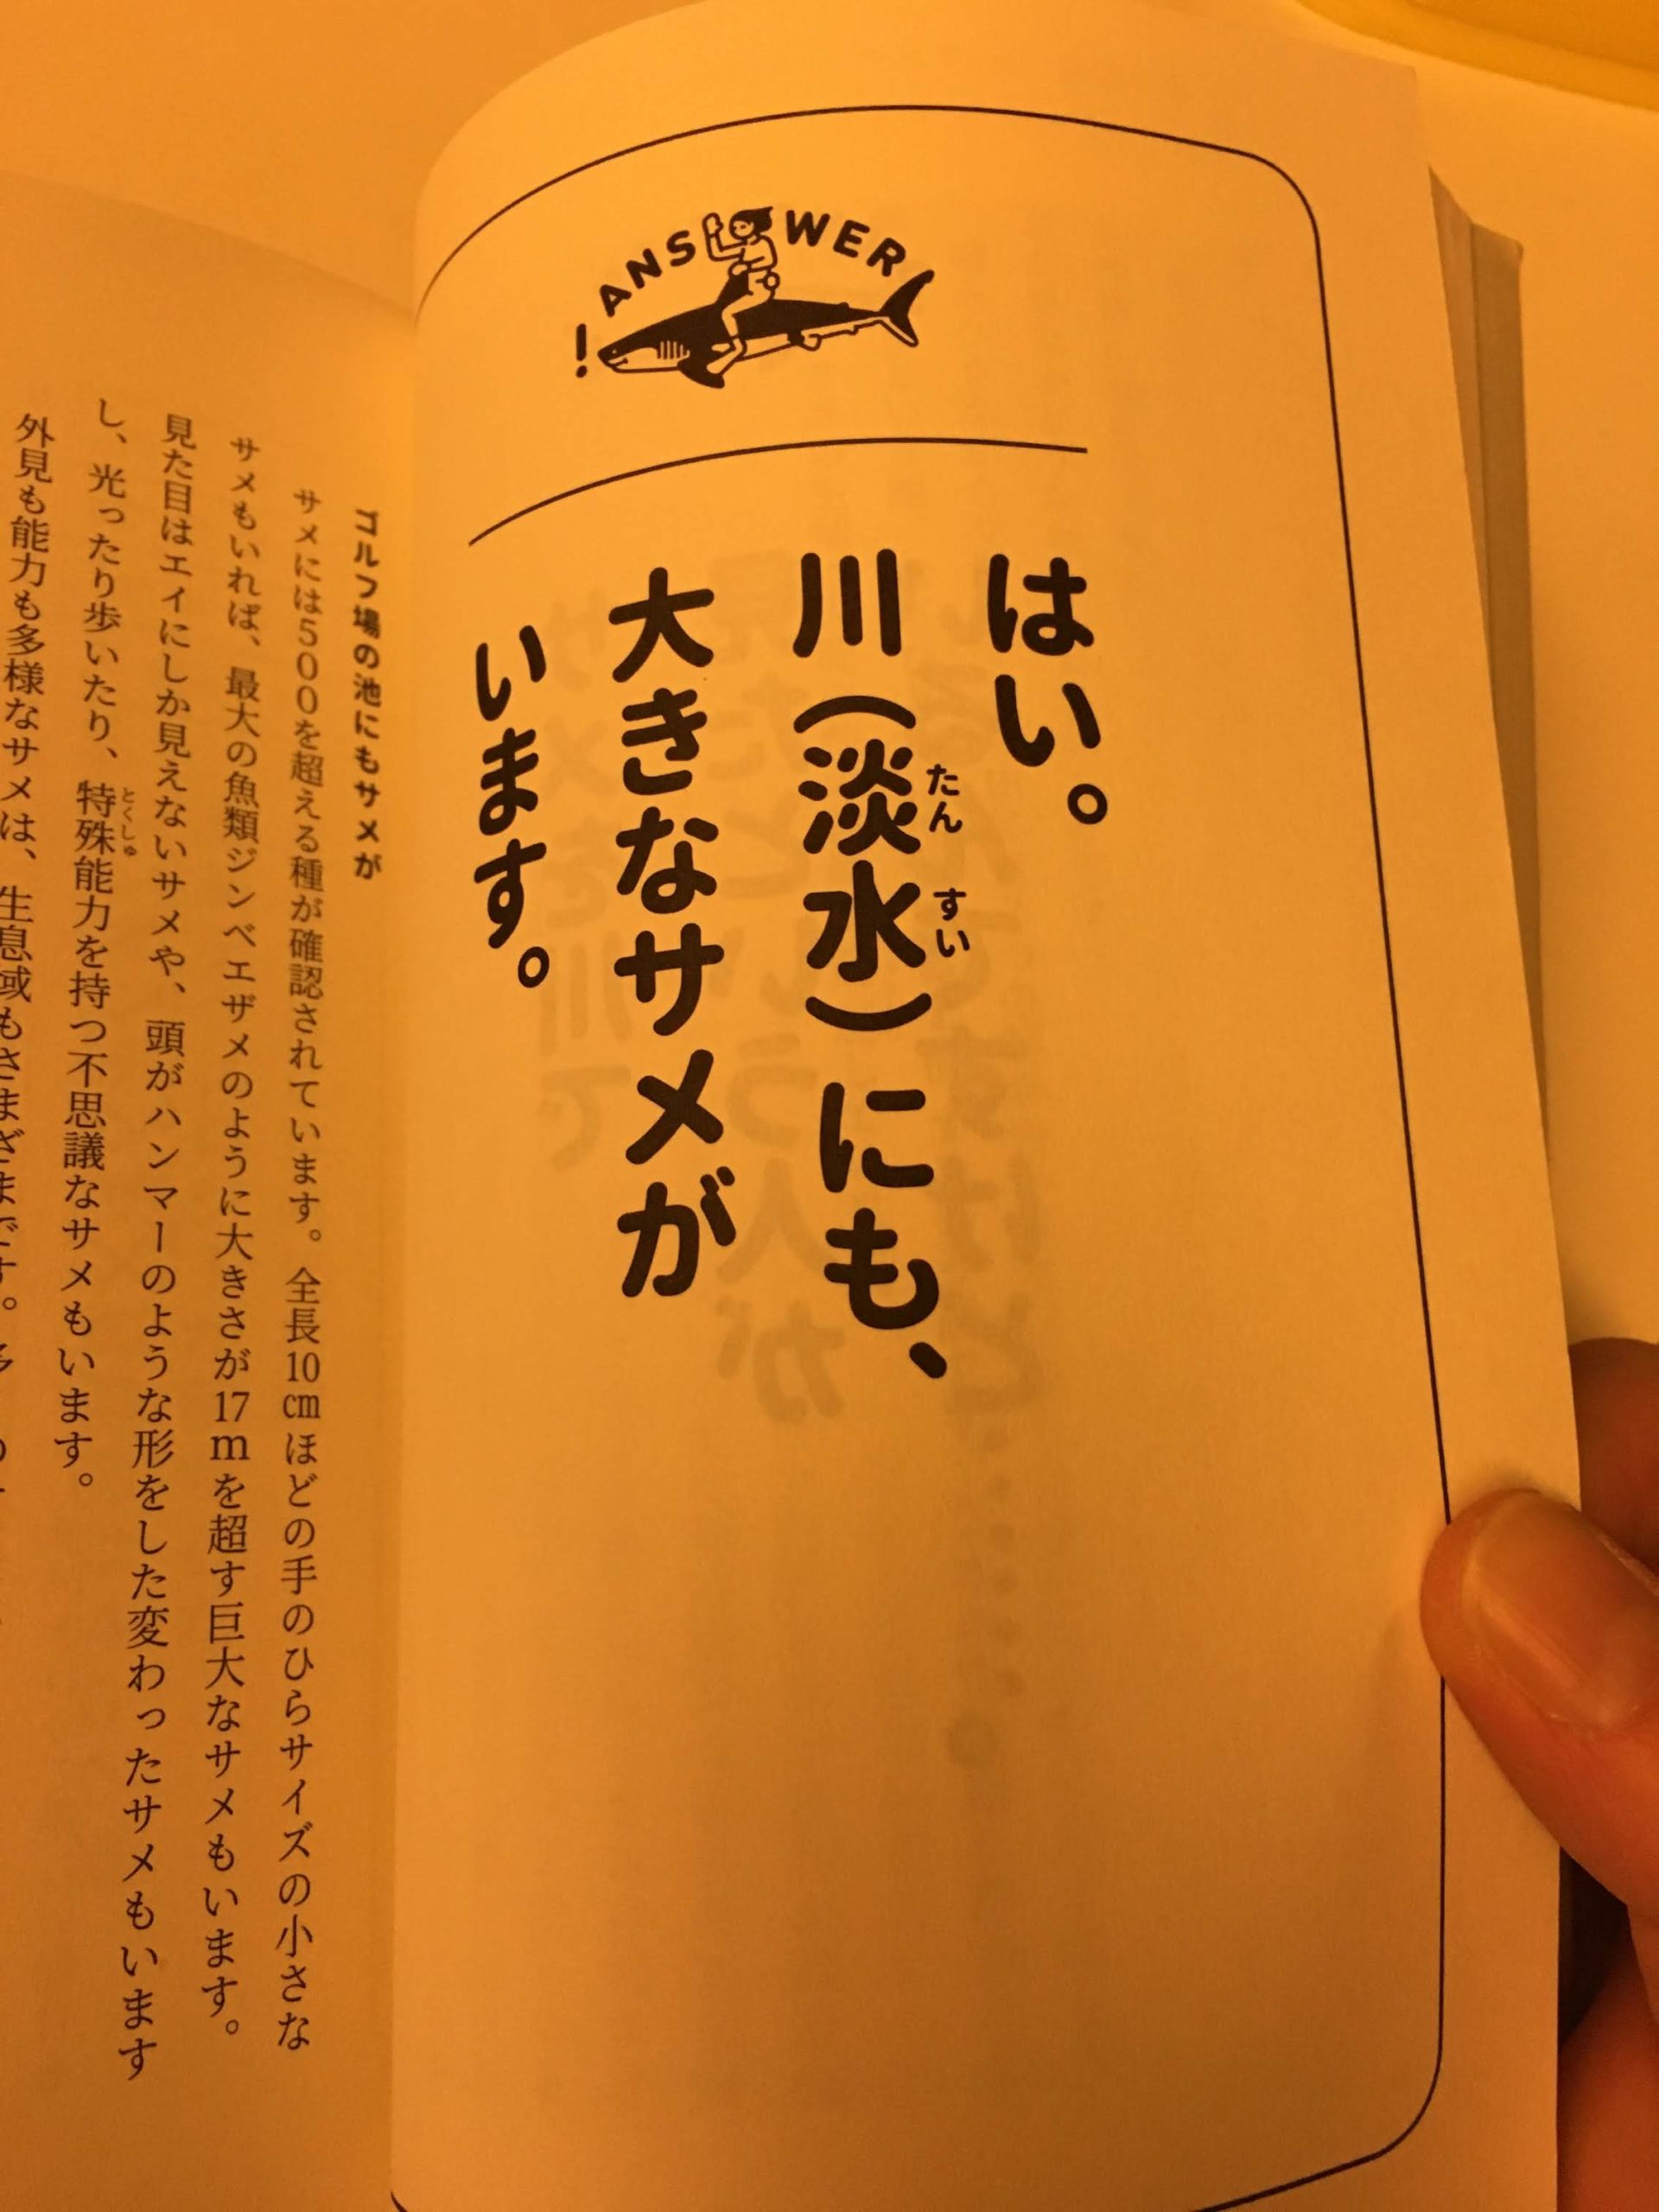 ANSWER!
はい。
川(淡水)にも、
たんすい
大きなサメが
います。
ゴルフ場の池にもサメが
サメには500を超える種が確認されています。全長10㎝ほどの手のひらサイズの小さな
サメもいれば、最大の魚類ジンベエザメのように大きさが17mを超す巨大なサメもいます。
見た目はエイにしか見えないサメや、頭がハンマーのような形をした変わったサメもいます
し、光ったり歩いたり、特殊能力を持つ不思議なサメもいます。
とくしゅ
外見も能力も多様なサメは、生息域もさまざまです。